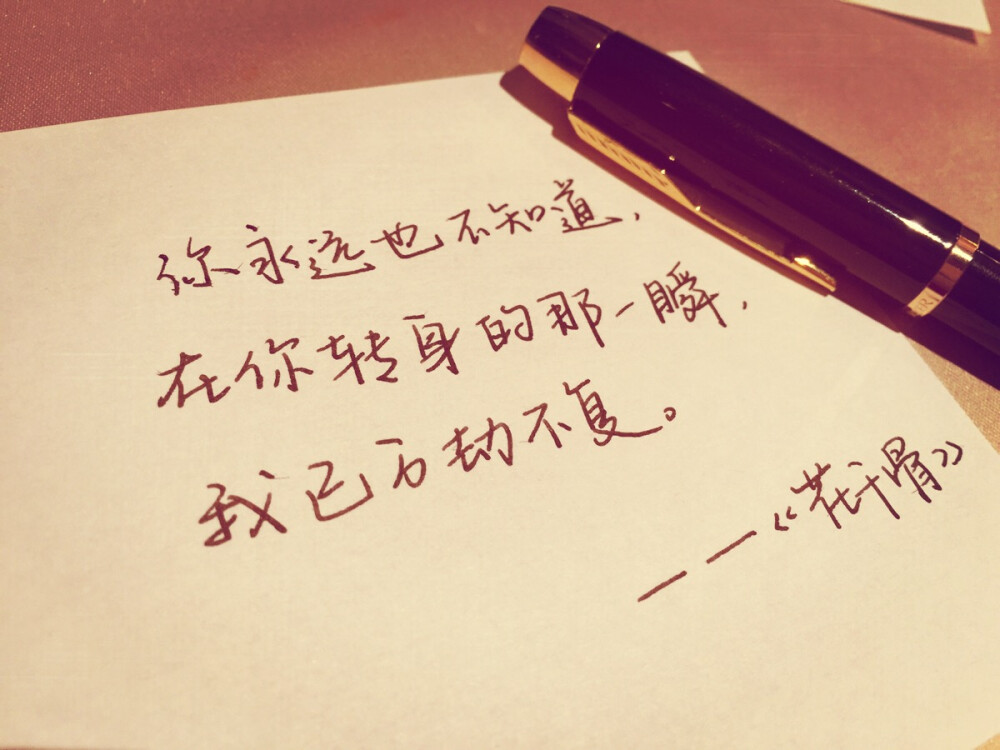 你永远也不知道,
在你转身的那一瞬,
我已万劫不复。
——《花千骨》